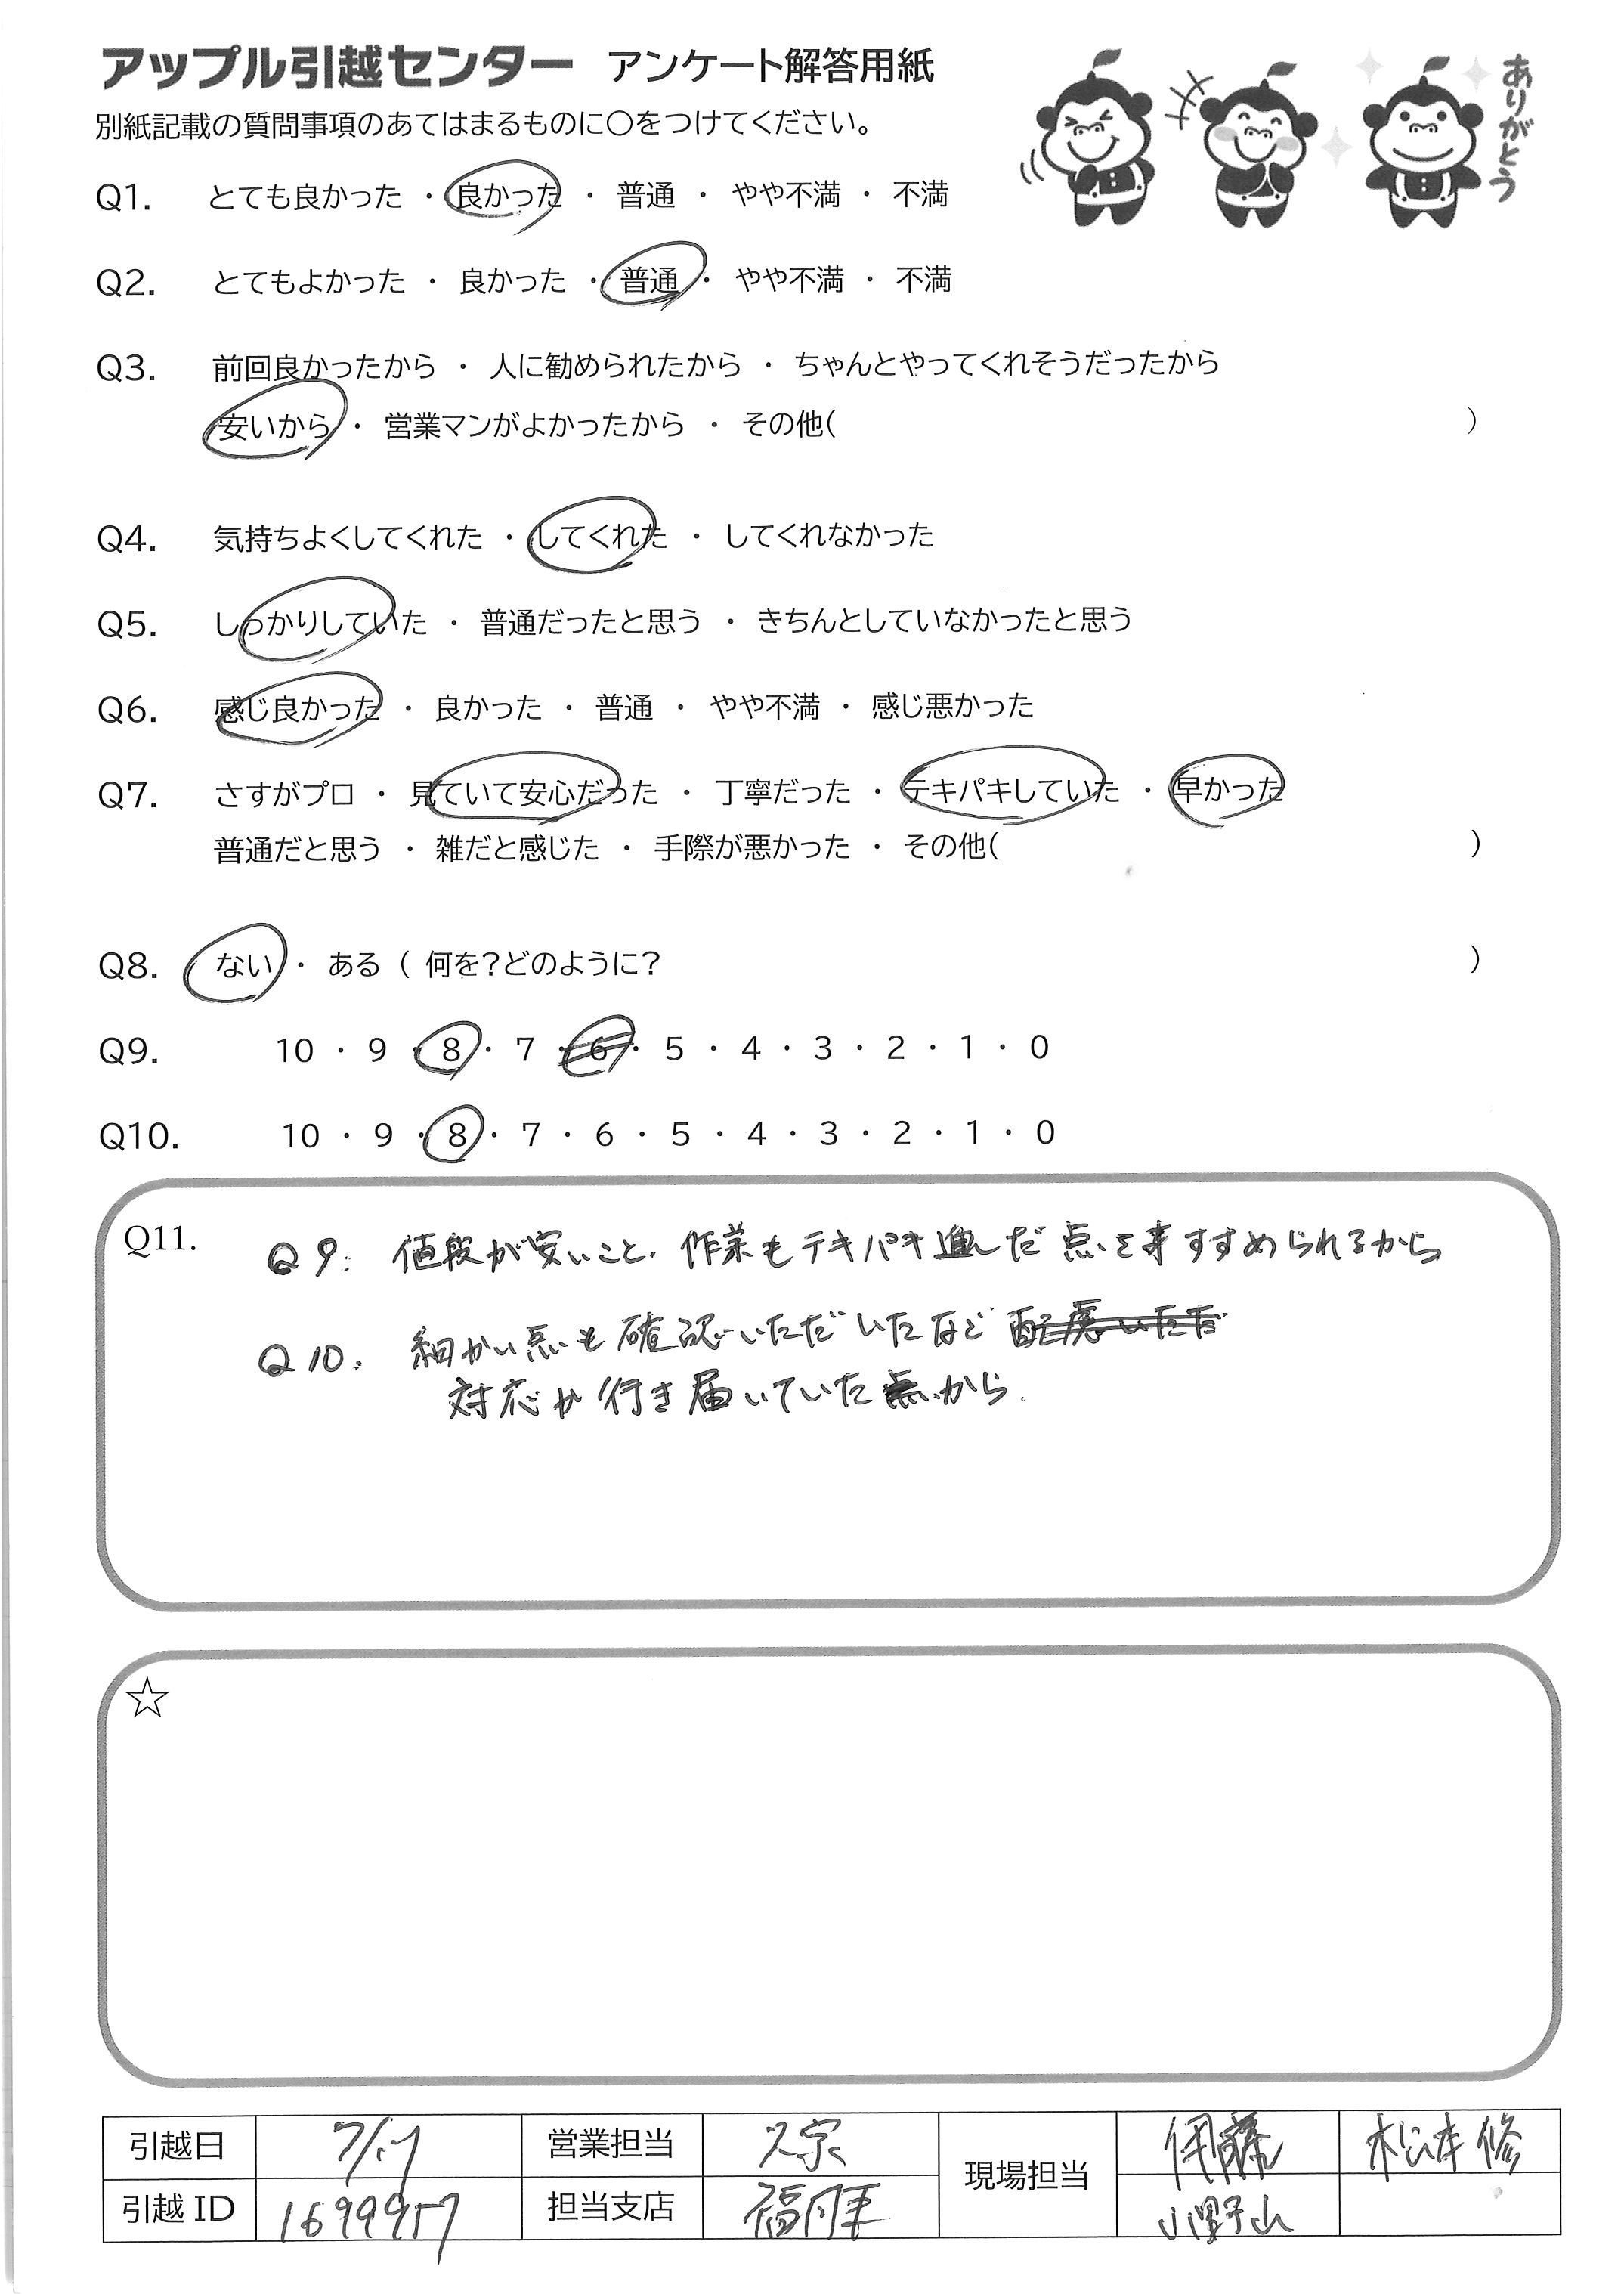 アップル引越センター アンケート解答用紙
ありがとう
別紙記載の質問事項のあてはまるものに○をつけてください。
Q1. とても良かった ・ 良かった ・ 普通 ・ やや不満 ・ 不満
Q2. とてもよかった ・ 良かった ・ 普通 ・ やや不満 ・ 不満
Q3. 前回良かったから ・ 人に勧められたから ・ ちゃんとやってくれそうだったから
安いから ・ 営業マンがよかったから ・ その他( )
Q4. 気持ちよくしてくれた ・ してくれた ・ してくれなかった
Q5. しっかりしていた ・ 普通だったと思う ・ きちんとしていなかったと思う
Q6. 感じ良かった ・ 良かった ・ 普通 ・ やや不満 ・ 感じ悪かった
Q7. さすがプロ ・ 見ていて安心だった ・ 丁寧だった ・ テキパキしていた ・ 早かった
普通だと思う ・ 雑だと感じた ・ 手際が悪かった ・ その他( )
Q8. ない ・ ある ( 何を?どのように? )
Q9. 10 ・ 9 ・ 8 ・ 7 ・ 6 ・ 5 ・ 4 ・ 3 ・ 2 ・ 1 ・ 0
Q10. 10 ・ 9 ・ 8 ・ 7 ・ 6 ・ 5 ・ 4 ・ 3 ・ 2 ・ 1 ・ 0
Q11. Q9: 値段が安いこと、作業もテキパキ進んだ点を すすめられるから
Q10: 細かい点も確認いただいたなど 配慮いただ
対応が行き届いていた から.
☆
引越日 営業担当 久宗 現場担当 伊藤 松本 修
引越 ID 1699957 担当支店